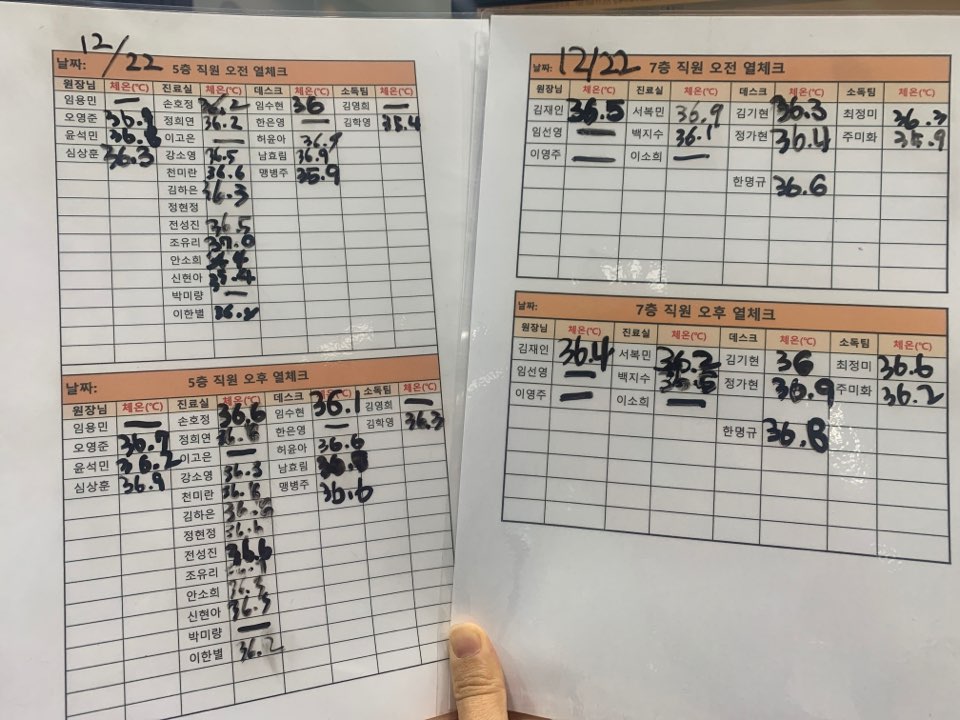 12/22
날짜: 5층 직원 오전 열체크
원장님 체온(℃) 진료실 체온(℃) 데스크 체온(℃) 소독팀 체온(℃)
임용민 — 손호정 36.2 임수현 36 김영희 —
오영준 정희연 36.2 한은영 — 김학영 35.4
윤석민 36.6 이고은 — 허윤아
심상훈 36.3 강소영 36.5 남효림 36.9
천미란 36.6 맹병주 35.9
김하은 36.3
정현정
전성진 36.5
조유리 37.0
안소희
신현아
박미량 —
이한별
날짜: 5층 직원 오후 열체크
원장님 체온(℃) 진료실 체온(℃) 데스크 체온(℃) 소독팀 체온(℃)
임용민 — 손호정 36.6 임수현 36.1 김영희 —
오영준 36.7 정희연 한은영 — 김학영 36.3
윤석민 36.2 이고은 — 허윤아 36.6
심상훈 36.9 강소영 36.3 남효림
천미란 맹병주 36.6
김하은
정현정 36.6
전성진 36.6
조유리
안소희
신현아 36.5
박미량 —
이한별 36.2
날짜: 12/22 7층 직원 오전 열체크
원장님 체온(℃) 진료실 체온(℃) 데스크 체온(℃) 소독팀 체온(℃)
김재인 36.5 서복민 36.9 김기현 36.3 최정미 36.3
임선영 — 백지수 36.1 정가현 36.4 주미화 35.9
이영주 — 이소희 —
한명규 36.6
날짜: 7층 직원 오후 열체크
원장님 체온(℃) 진료실 체온(℃) 데스크 체온(℃) 소독팀 체온(℃)
김재인 36.4 서복민 36.2 김기현 36 최정미 36.6
임선영 — 백지수 정가현 36.9 주미화 36.2
이영주 — 이소희 —
한명규 36.8